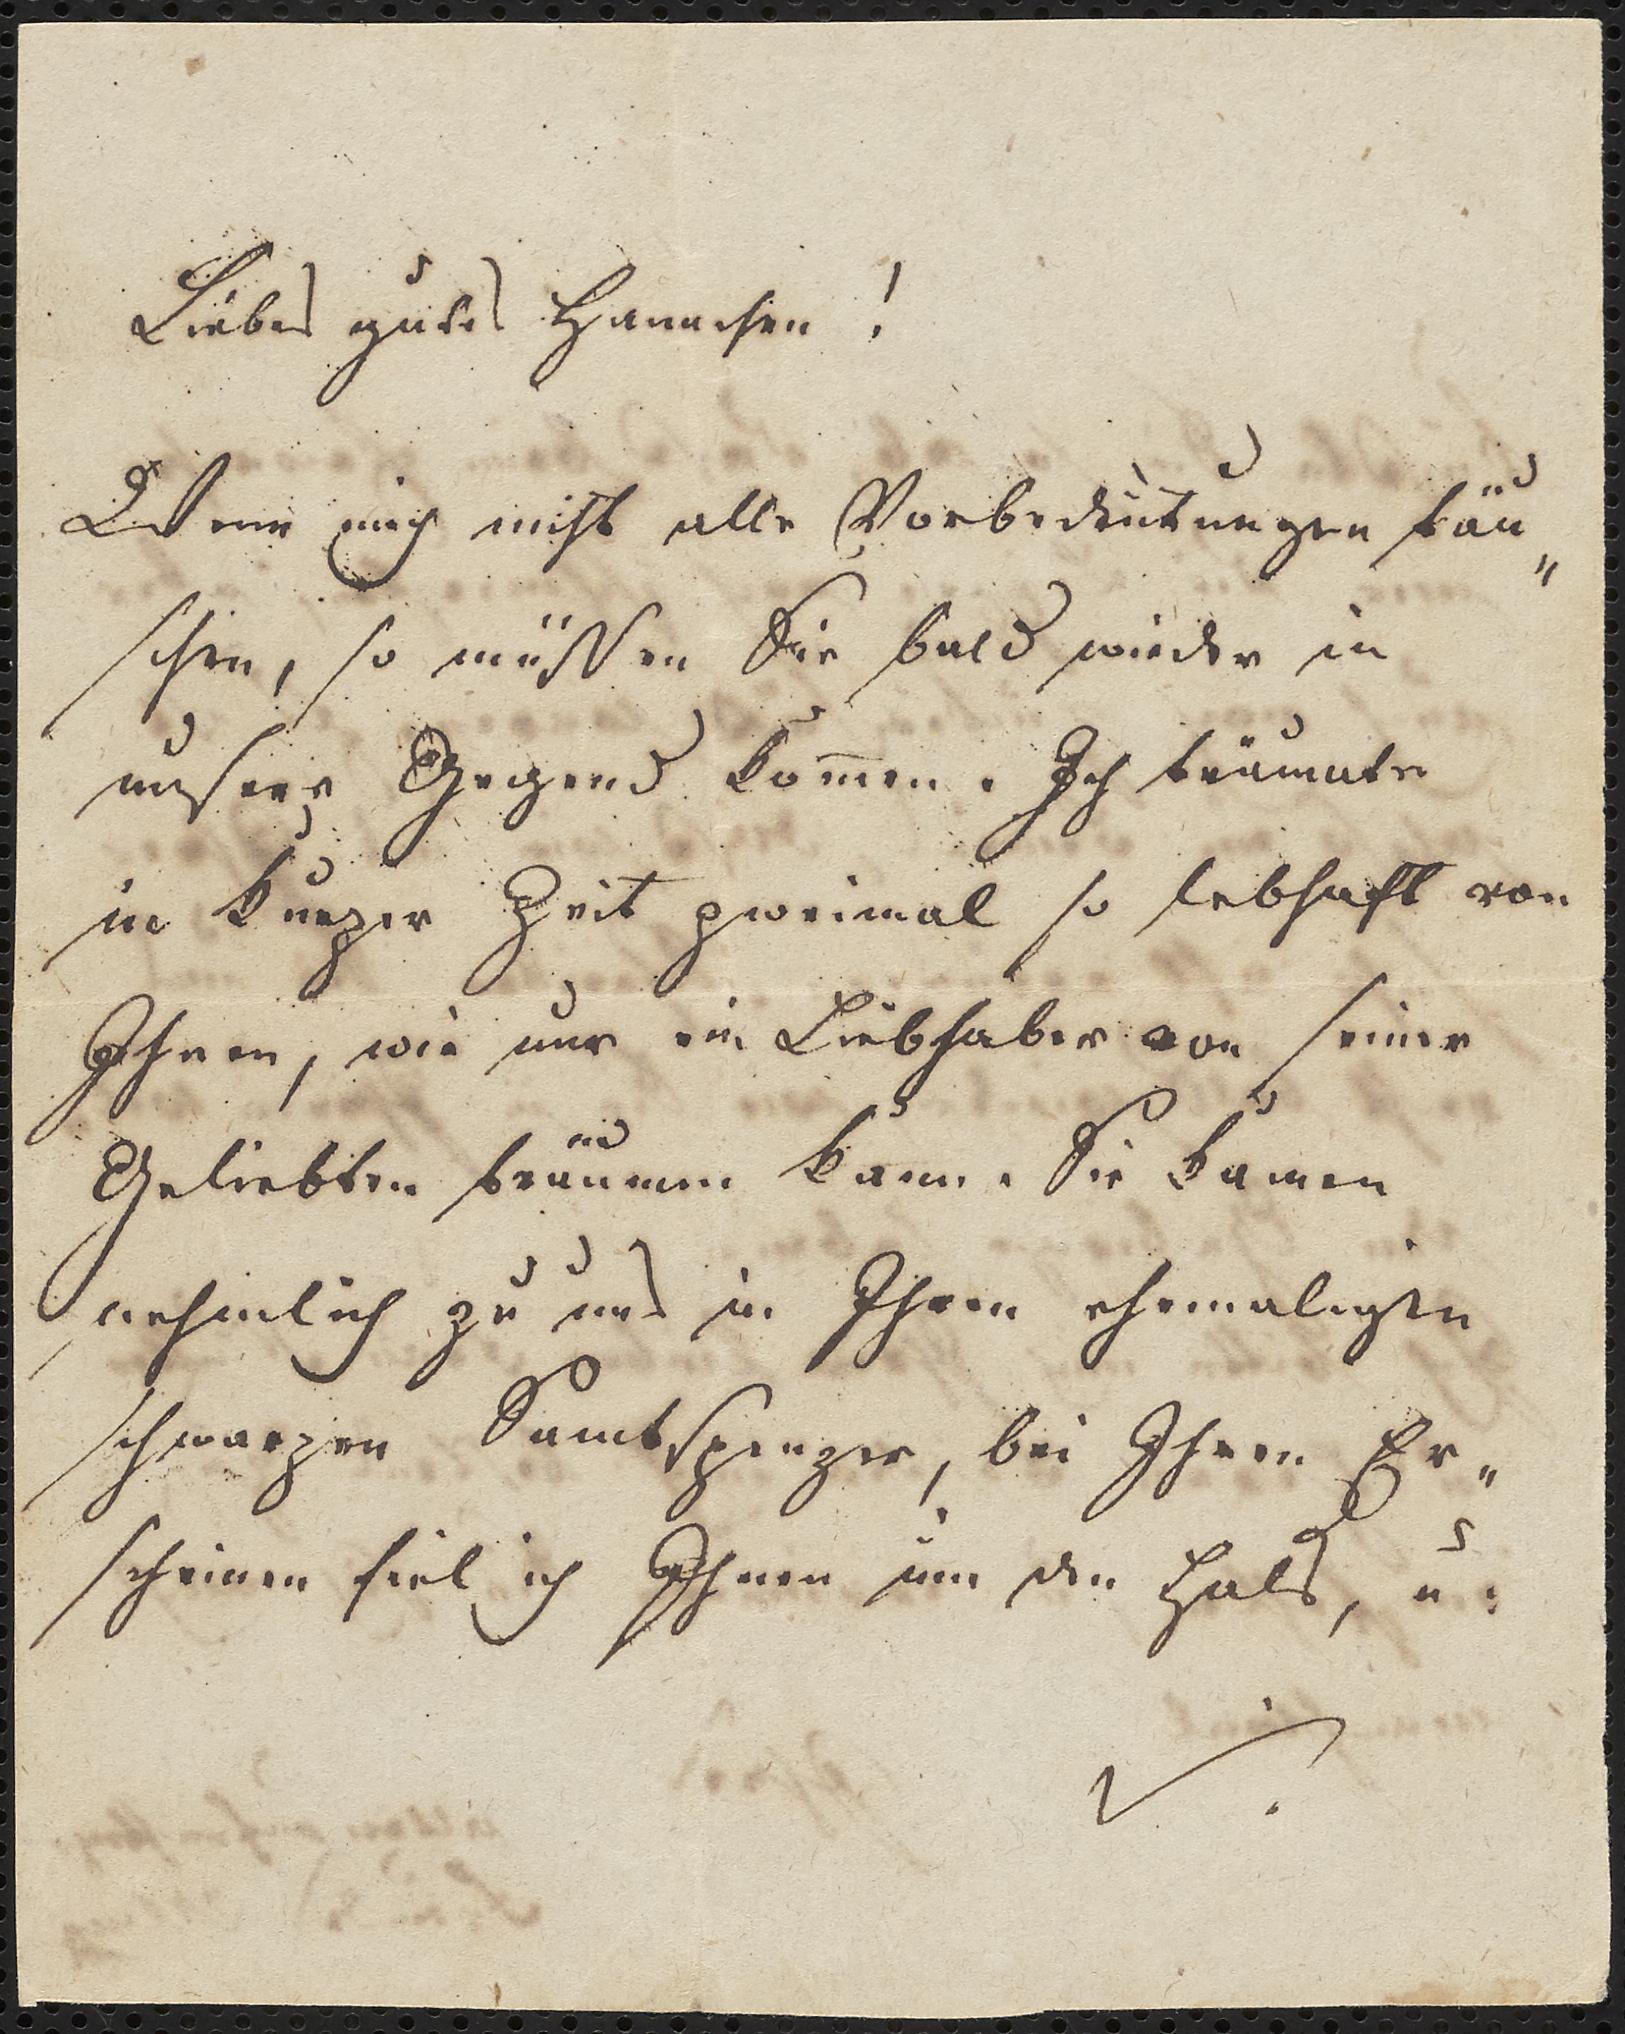 Liebes gutes Hannchen!
Wenn mich nicht alle Vorbedeutungen täu„
schen, so müssen Sie bald wieder in
unsere Gegend kom̅en. Ich träumte
in kurzer Zeit zweimal so lebhaft von
Ihnen, wie nur ein Liebhaber von seiner
Geliebten träumen kann. Sie kamen
nehmlich zu uns in Ihrem ehemaligen
schwarzen Samtspenzer, bei Ihrem Er„
scheinen fiel ich Ihnen um den Hals, u: